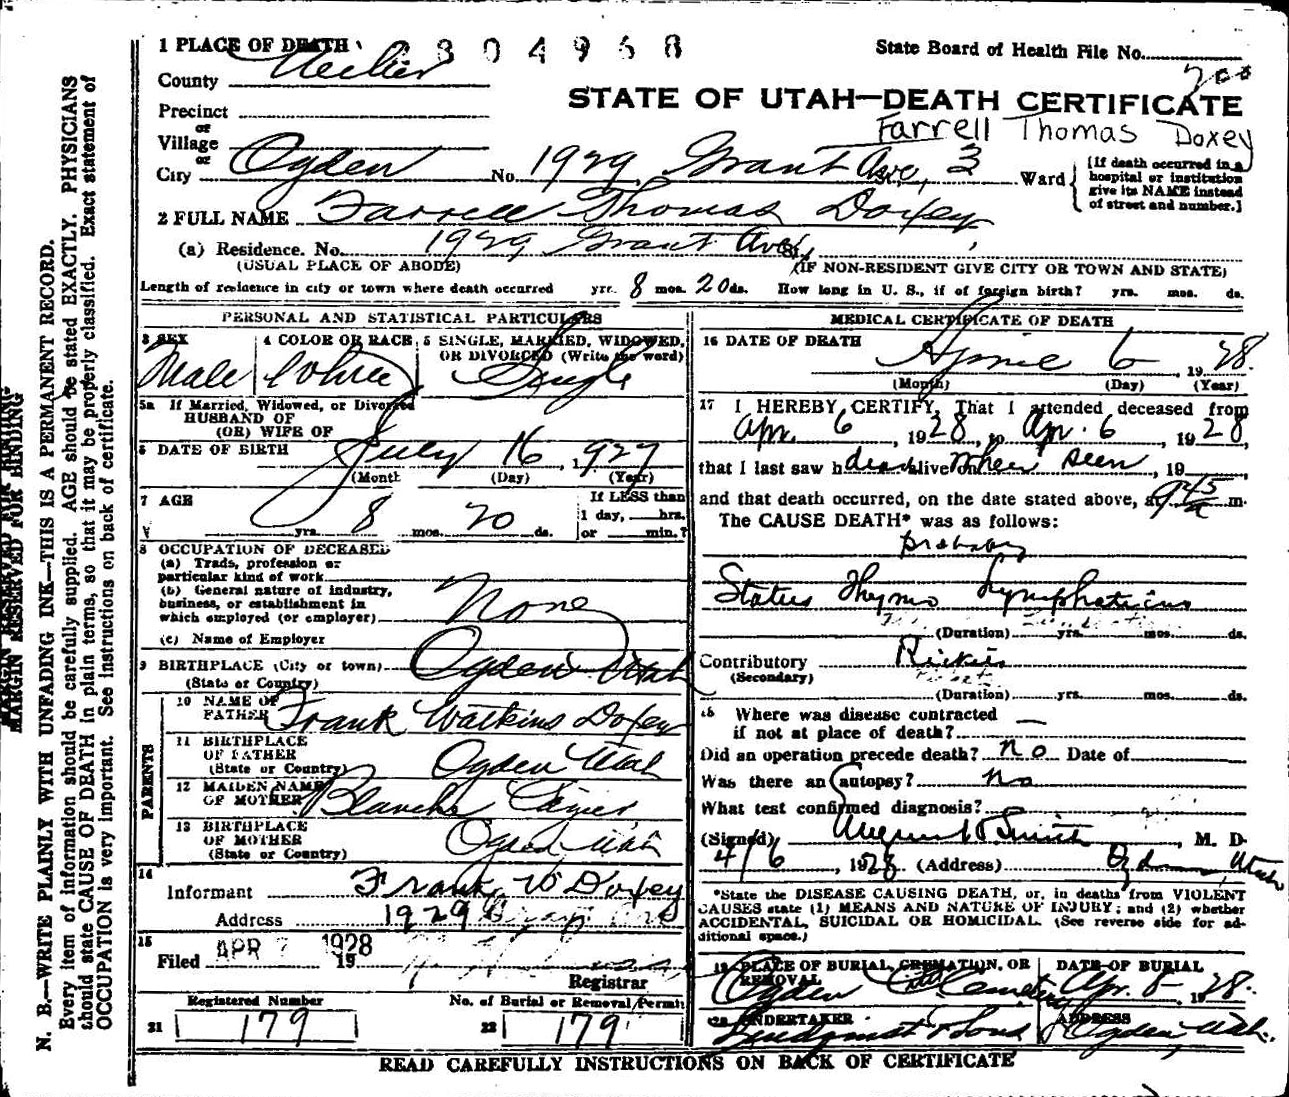 1 PLACE OF DEATH
304968
State Board of Health File No.
County Weber
200
STATE OF UTAH—DEATH CERTIFICATE
Precinct
Farrell Thomas Doxey
or
Village
or
City Ogden No. 1929 Grant Ave, 3 Ward
[If death occurred in a hospital or institution give its NAME instead of street and number.]
2 FULL NAME Farrell Thomas Doxey
(a) Residence. No. 1929 Grant Ave St.,
(USUAL PLACE OF ABODE) (IF NON-RESIDENT GIVE CITY OR TOWN AND STATE)
Length of residence in city or town where death occurred yrs. 8 mos. 20 ds. How long in U. S., if of foreign birth? yrs. mos. ds.
PERSONAL AND STATISTICAL PARTICULARS
3 SEX 4 COLOR OR RACE 5 SINGLE, MARRIED, WIDOWED, OR DIVORCED (Write the word)
Male White Single
5a If Married, Widowed, or Divorced
HUSBAND OF
(OR) WIFE OF
6 DATE OF BIRTH July 16, 1927
(Month) (Day) (Year)
7 AGE
yrs. 8 mos. 20 ds.
If LESS than 1 day, hrs. or min.?
8 OCCUPATION OF DECEASED
(a) Trade, profession or particular kind of work
(b) General nature of industry, business, or establishment in which employed (or employer)
None
(c) Name of Employer
9 BIRTHPLACE (City or town) Ogden Utah
(State or Country)
PARENTS
10 NAME OF FATHER Frank Watkins Doxey
11 BIRTHPLACE OF FATHER Ogden Utah
(State or Country)
12 MAIDEN NAME OF MOTHER Blanche
13 BIRTHPLACE OF MOTHER Ogden Utah
(State or Country)
14
Informant Frank W Doxey
Address 1929 Grant Ave
15
Filed APR 7 1928
19
Registrar
Registered Number
21 179
No. of Burial or Removal Permit
22 179
MEDICAL CERTIFICATE OF DEATH
16 DATE OF DEATH April 6, 1928.
(Month) (Day) (Year)
17 I HEREBY CERTIFY, That I attended deceased from
Apr. 6, 1928, to Apr. 6, 1928,
that I last saw h dead alive on when seen, 19
and that death occurred, on the date stated above, at 9 45 a m.
The CAUSE DEATH* was as follows:
probably
Status Thymo Lymphaticus
(Duration) yrs. mos. ds.
Contributory Rickets
(Secondary)
(Duration) yrs. mos. ds.
18 Where was disease contracted
if not at place of death?
Did an operation precede death? no Date of
Was there an autopsy? no
What test confirmed diagnosis?
(Signed) Smith, M. D.
4/6, 1928 (Address) Ogden, Utah
*State the DISEASE CAUSING DEATH, or, in deaths from VIOLENT
CAUSES state (1) MEANS AND NATURE OF INJURY; and (2) whether
ACCIDENTAL, SUICIDAL OR HOMICIDAL. (See reverse side for ad-
ditional space.)
19 PLACE OF BURIAL, CREMATION, OR REMOVAL DATE OF BURIAL
Ogden City Cemetery Apr. 8- 1928.
20 UNDERTAKER ADDRESS
Lindquist & Sons Ogden, Utah.
READ CAREFULLY INSTRUCTIONS ON BACK OF CERTIFICATE
MARGIN RESERVED FOR BINDING
N. B.—WRITE PLAINLY WITH UNFADING INK—THIS IS A PERMANENT RECORD.
Every item of information should be carefully supplied. AGE should be stated EXACTLY. PHYSICIANS
should state CAUSE OF DEATH in plain terms, so that it may be properly classified. Exact statement of
OCCUPATION is very important. See instructions on back of certificate.